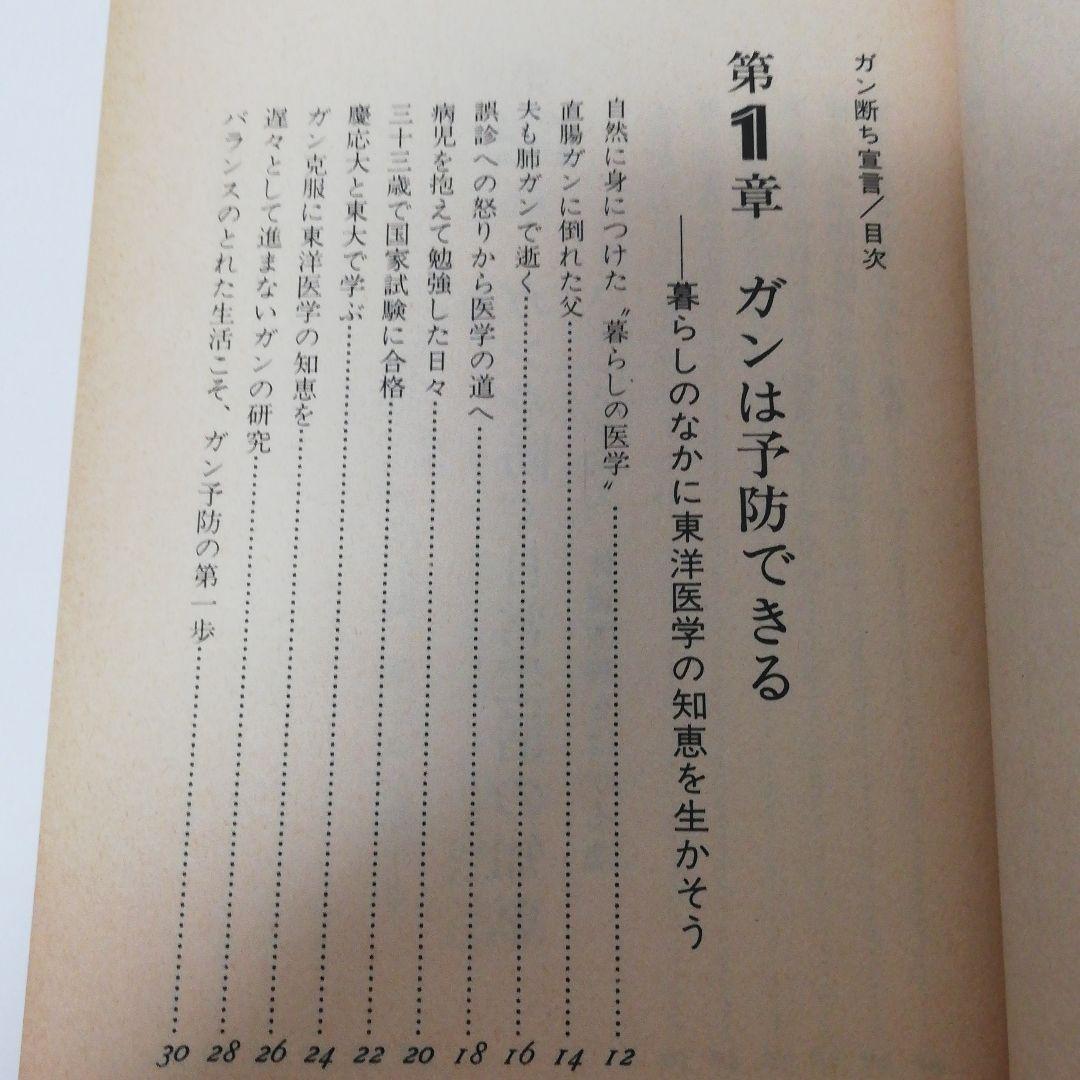 ガン断ち宣言/目次
第1章 ガンは予防できる
――暮らしのなかに東洋医学の知恵を生かそう
自然に身につけた〝暮らしの医学〟……………12
直腸ガンに倒れた父……………14
夫も肺ガンで逝く……………16
誤診への怒りから医学の道へ……………18
病児を抱えて勉強した日々……………20
三十三歳で国家試験に合格……………22
慶応大と東大で学ぶ……………24
ガン克服に東洋医学の知恵を……………26
遅々として進まないガンの研究……………28
バランスのとれた生活こそ、ガン予防の第一歩……………30